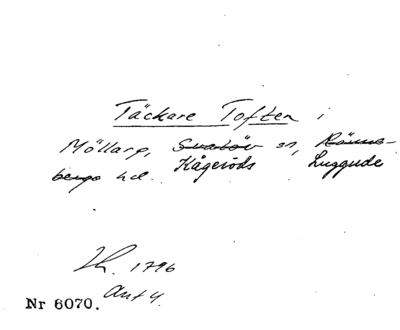 Täckare Toften i
Möllarp, Svalöv sn, Rönne-
bergs hd. Kågeröds Luggude
Lh. 1796
Ant 4.
Nr 6070.